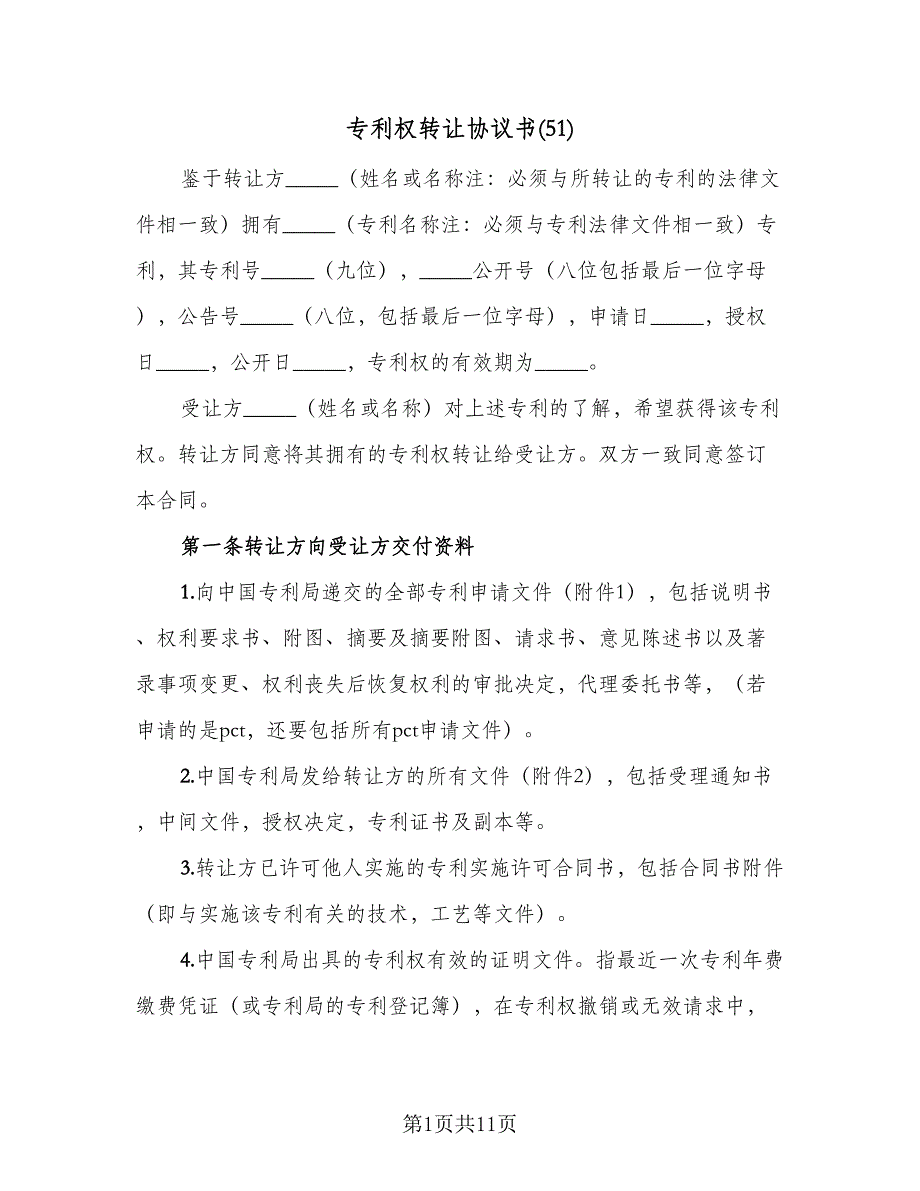 专利权转让协议书(51)
鉴于转让方_____（姓名或名称注：必须与所转让的专利的法律文
件相一致）拥有_____（专利名称注：必须与专利法律文件相一致）专
利，其专利号_____（九位），_____公开号（八位包括最后一位字母
），公告号_____（八位，包括最后一位字母），申请日_____，授权
日_____，公开日_____，专利权的有效期为_____。
受让方_____（姓名或名称）对上述专利的了解，希望获得该专利
权。转让方同意将其拥有的专利权转让给受让方。双方一致同意签订
本合同。
第一条转让方向受让方交付资料
1.向中国专利局递交的全部专利申请文件（附件1），包括说明书
、权利要求书、附图、摘要及摘要附图、请求书、意见陈述书以及著
录事项变更、权利丧失后恢复权利的审批决定，代理委托书等，（若
申请的是pct，还要包括所有pct申请文件）。
2.中国专利局发给转让方的所有文件（附件2），包括受理通知书
，中间文件，授权决定，专利证书及副本等。
3.转让方已许可他人实施的专利实施许可合同书，包括合同书附件
（即与实施该专利有关的技术，工艺等文件）。
4.中国专利局出具的专利权有效的证明文件。指最近一次专利年费
缴费凭证（或专利局的专利登记簿），在专利权撤销或无效请求中，
第1页共11页